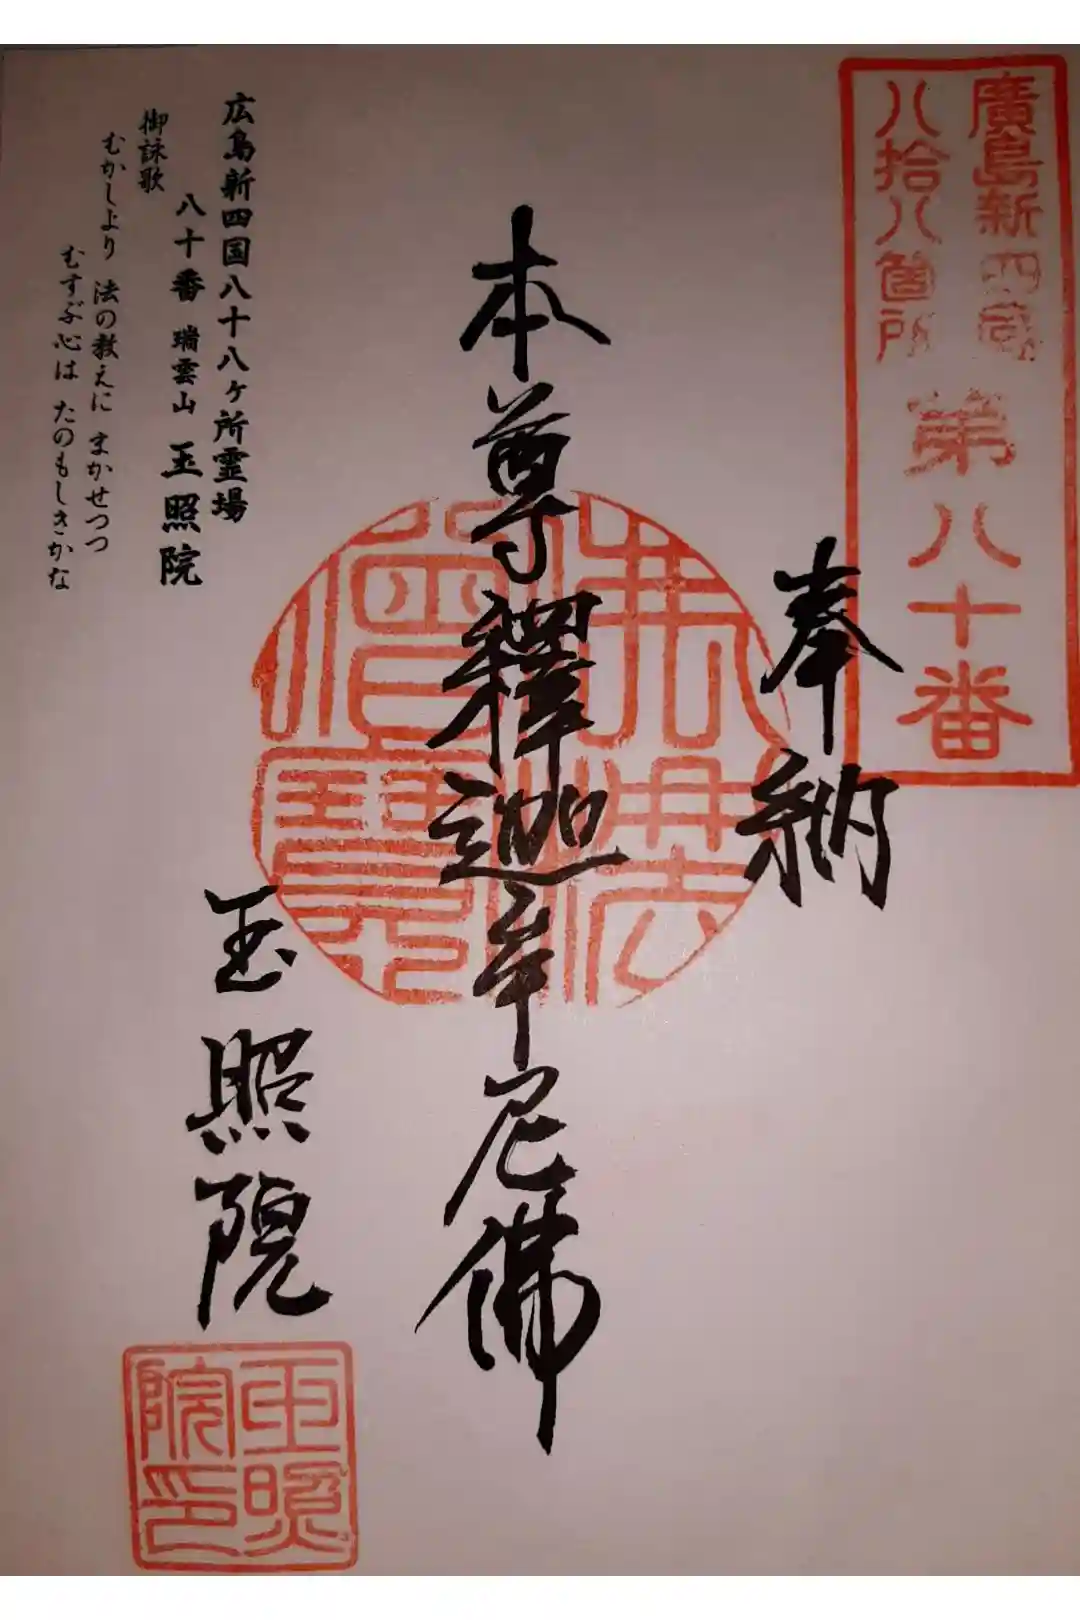 廣島新四國
八拾八箇所
第八十番
奉納
本尊釋迦牟尼佛
佛法
僧寶
玉照院
玉照
院印
広島新四国八十八ヶ所霊場
八十番 瑞雲山 玉照院
御詠歌
むかしより 法の教えに まかせつつ
むすぶ心は たのもしきかな